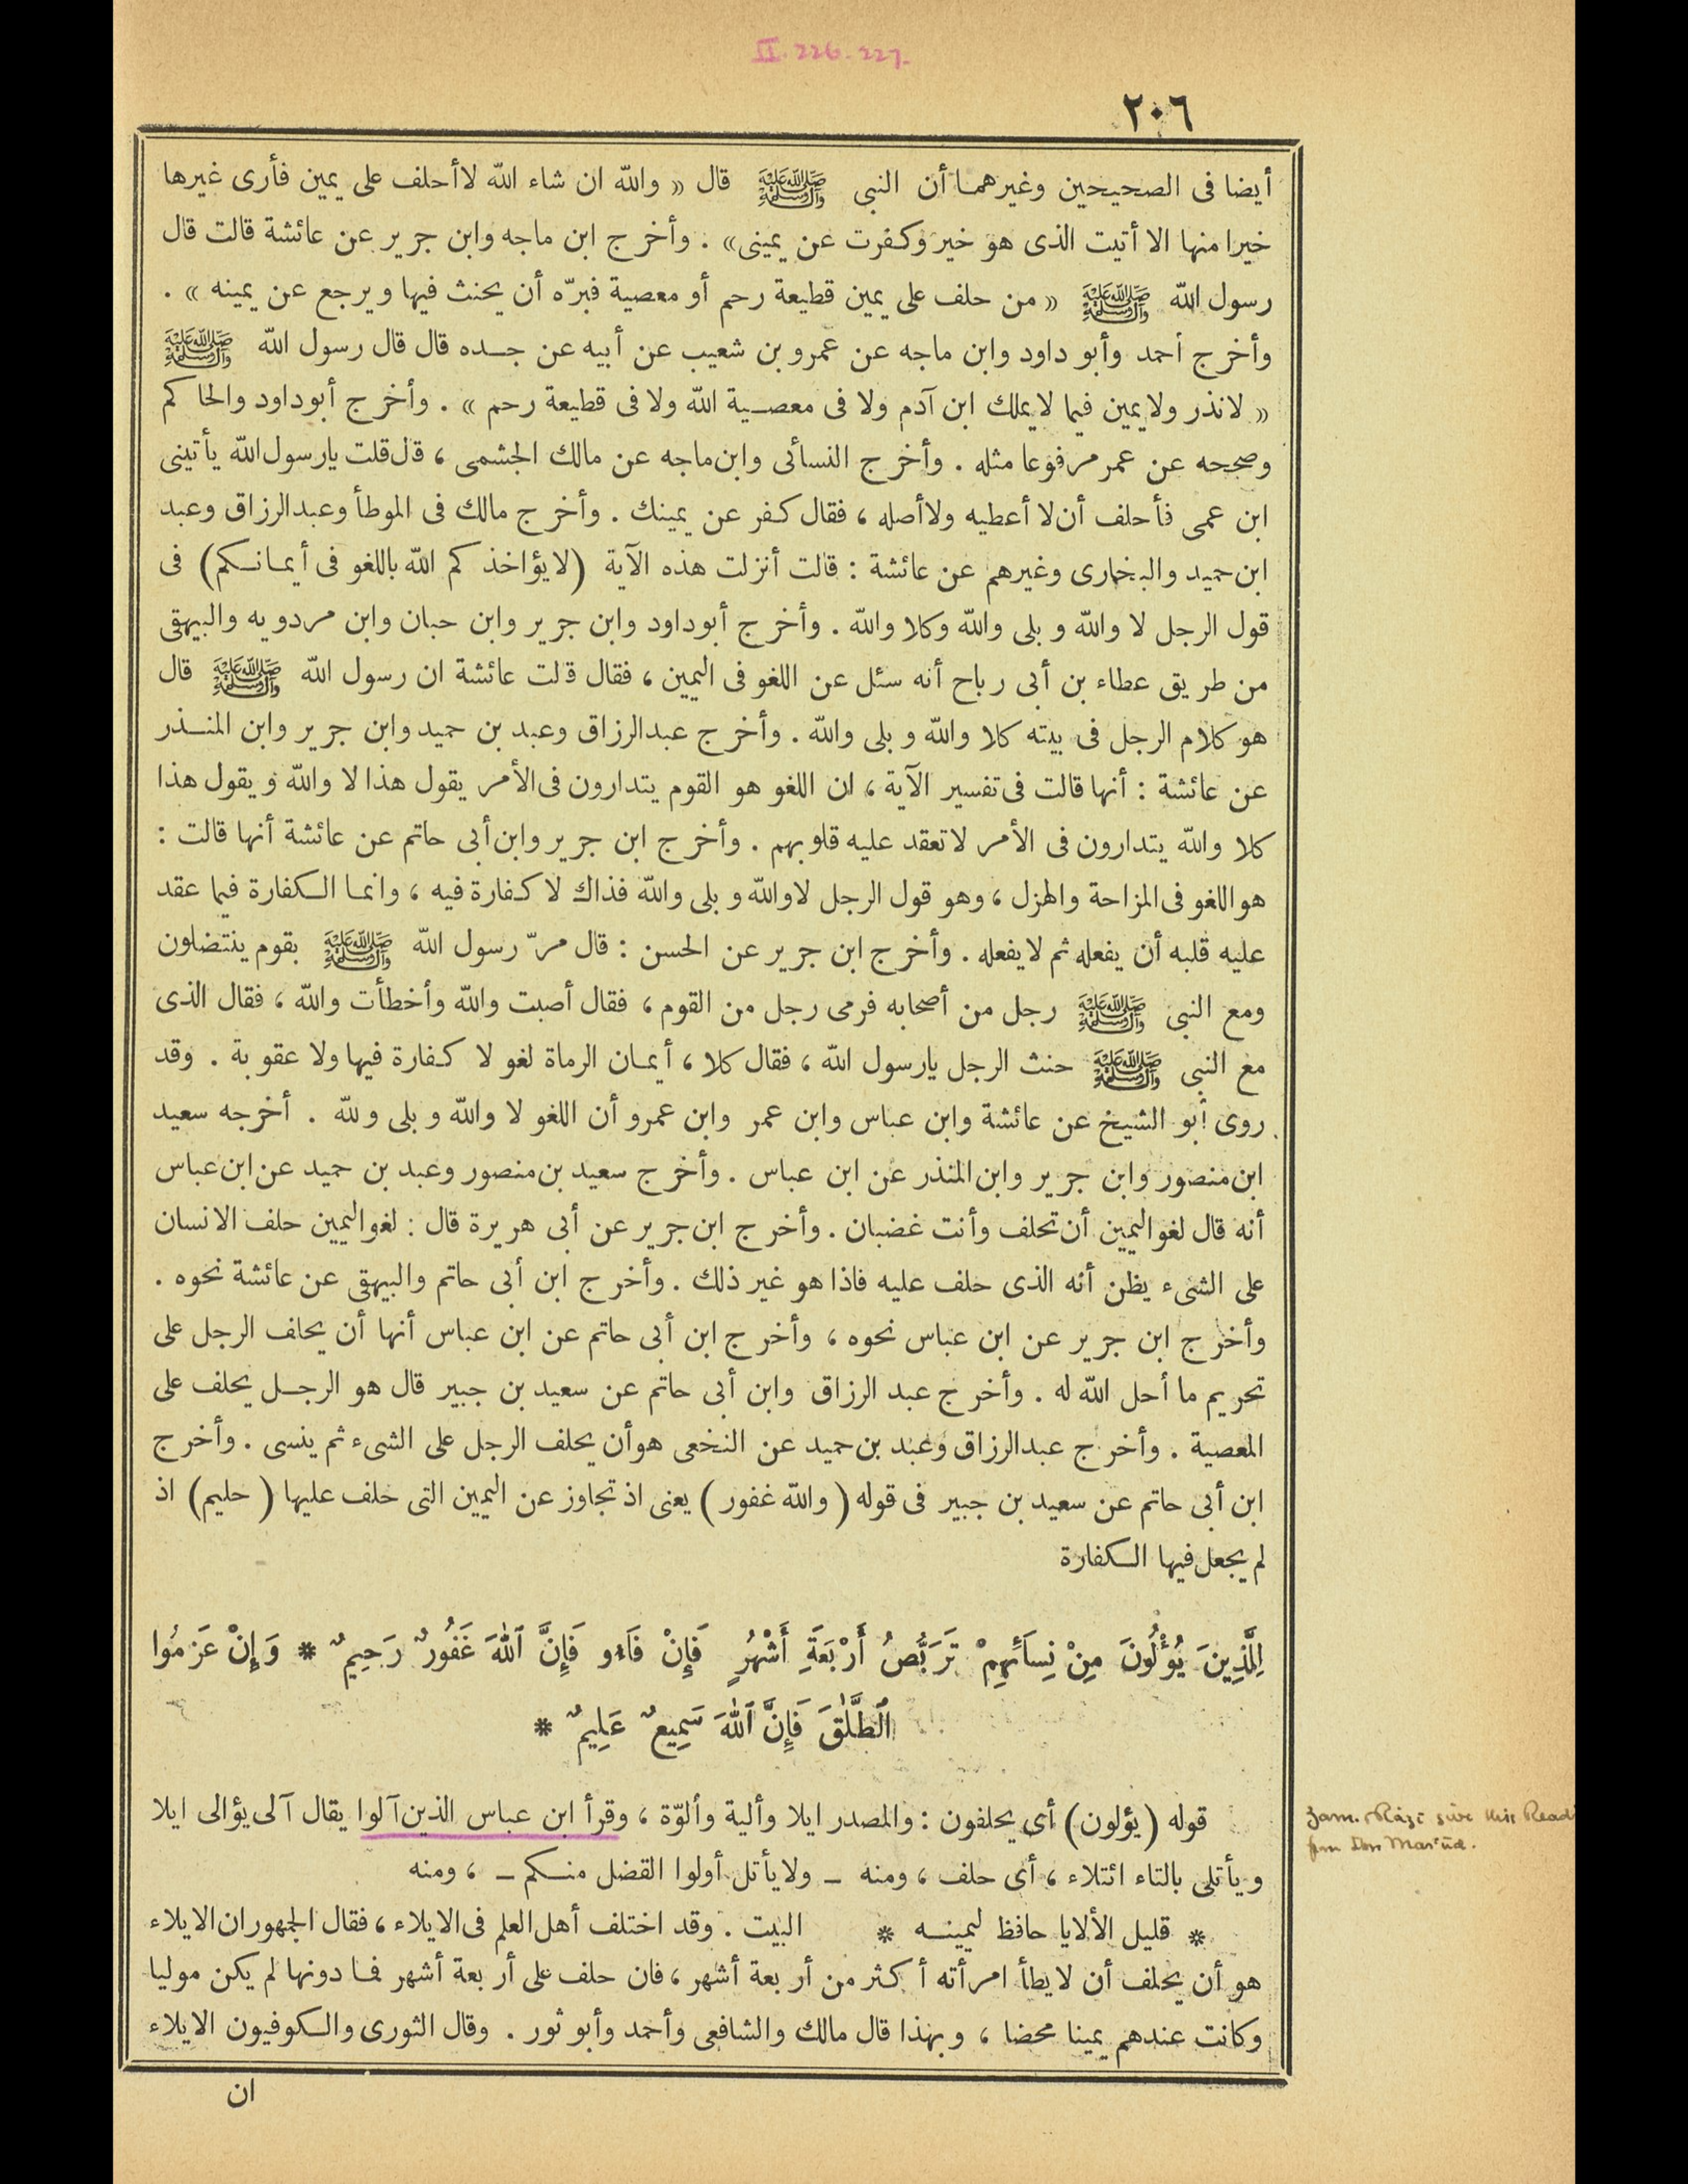 II. 226. 227.
٢٠٦
أيضا فى الصحيحين وغيرهما أن النبى ﷺ قال « والله ان شاء الله لا أحلف على يمين فأرى غيرها
خيرا منها الا أتيت الذى هو خير وكفرت عن يمينى» . وأخرج ابن ماجه وابن جرير عن عائشة قالت قال
رسول الله ﷺ « من حلف على يمين قطيعة رحم أو معصية فبرّه أن يحنث فيها ويرجع عن يمينه » .
وأخرج أحمد وأبو داود وابن ماجه عن عمرو بن شعيب عن أبيه عن جده قال قال رسول الله ﷺ
« لانذر ولا يمين فيما لا يملك ابن آدم ولا فى معصية الله ولا فى قطيعة رحم » . وأخرج أبوداود والحاكم
وصححه عن عمر مرفوعا مثله . وأخرج النسائى وابن ماجه عن مالك الجشمى ، قال قلت يارسول الله يأتينى
ابن عمى فأحلف أن لا أعطيه ولا أصله ، فقال كفر عن يمينك . وأخرج مالك فى الموطأ وعبد الرزاق وعبد
ابن حميد والبخارى وغيرهم عن عائشة : قالت أنزلت هذه الآية (لا يؤاخذكم الله باللغو فى أيمانكم) فى
قول الرجل لا والله و بلى والله وكلا والله . وأخرج أبوداود وابن جرير وابن حبان وابن مردويه والبيهقى
من طريق عطاء بن أبى رباح أنه سئل عن اللغو فى اليمين ، فقال قالت عائشة ان رسول الله ﷺ قال
هو كلام الرجل فى بيته كلا والله و بلى والله . وأخرج عبدالرزاق وعبد بن حميد وابن جرير وابن المنذر
عن عائشة : أنها قالت فى تفسير الآية ، ان اللغو هو القوم يتدارون فى الأمر يقول هذا لا والله ويقول هذا
كلا والله يتدارون فى الأمر لا تعقد عليه قلوبهم . وأخرج ابن جرير وابن أبى حاتم عن عائشة أنها قالت :
هو اللغو فى المزاحة والهزل ، وهو قول الرجل لا والله و بلى والله فذاك لا كفارة فيه ، وانما الكفارة فيما عقد
عليه قلبه أن يفعله ثم لا يفعله . وأخرج ابن جرير عن الحسن : قال مرّ رسول الله ﷺ بقوم ينتضلون
ومع النبى ﷺ رجل من أصحابه فرمى رجل من القوم ، فقال أصبت والله وأخطأت والله ، فقال الذى
مع النبى ﷺ حنث الرجل يارسول الله ، فقال كلا ، أيمان الرماة لغو لا كفارة فيها ولا عقوبة . وقد
روى أبو الشيخ عن عائشة وابن عباس وابن عمر وابن عمرو أن اللغو لا والله و بلى ولله . أخرجه سعيد
ابن منصور وابن جرير وابن المنذر عن ابن عباس . وأخرج سعيد بن منصور وعبد بن حميد عن ابن عباس
أنه قال لغو اليمين أن تحلف وأنت غضبان . وأخرج ابن جرير عن أبى هريرة قال : لغو اليمين حلف الانسان
على الشىء يظن أنه الذى حلف عليه فاذا هو غير ذلك . وأخرج ابن أبى حاتم والبيهقى عن عائشة نحوه .
وأخرج ابن جرير عن ابن عباس نحوه ، وأخرج ابن أبى حاتم عن ابن عباس أنها أن يحلف الرجل على
تحريم ما أحل الله له . وأخرج عبد الرزاق وابن أبى حاتم عن سعيد بن جبير قال هو الرجل يحلف على
المعصية . وأخرج عبدالرزاق وعبد بن حميد عن النخعى هو أن يحلف الرجل على الشىء ثم ينسى . وأخرج
ابن أبى حاتم عن سعيد بن جبير فى قوله ( والله غفور ) يعنى اذ تجاوز عن اليمين التى حلف عليها ( حليم) اذ
لم يجعل فيها الكفارة
لِلَّذِينَ يُؤْلُونَ مِنْ نِسَآئِهِمْ تَرَبُّصُ أَرْبَعَةِ أَشْهُرٍ فَإِنْ فَآءُو فَإِنَّ ٱللهَ غَفُورٌ رَحِيمٌ * وَإِنْ عَزَمُوا
ٱلطَّلَٰقَ فَإِنَّ ٱللهَ سَمِيعٌ عَلِيمٌ *
قوله (يؤلون) أى يحلفون : والمصدر ايلا وألية وألوّة ، وقرأ ابن عباس الذين آلوا يقال آلى يؤالى ايلا
Zam. & Rāzī give this Read
from Ibn Mas'ūd.
ويأتلى بالتاء ائتلاء ، أى حلف ، ومنه – ولا يأتل أولوا الفضل منكم – ، ومنه
* قليل الألايا حافظ ليمينه * البيت . وقد اختلف أهل العلم فى الايلاء ، فقال الجمهور ان الايلاء
هو أن يحلف أن لا يطأ امرأته أكثر من أربعة أشهر ، فان حلف على أربعة أشهر فما دونها لم يكن موليا
وكانت عندهم يمينا محضا ، وبهذا قال مالك والشافعى وأحمد وأبو ثور . وقال الثورى والكوفيون الايلاء
ان